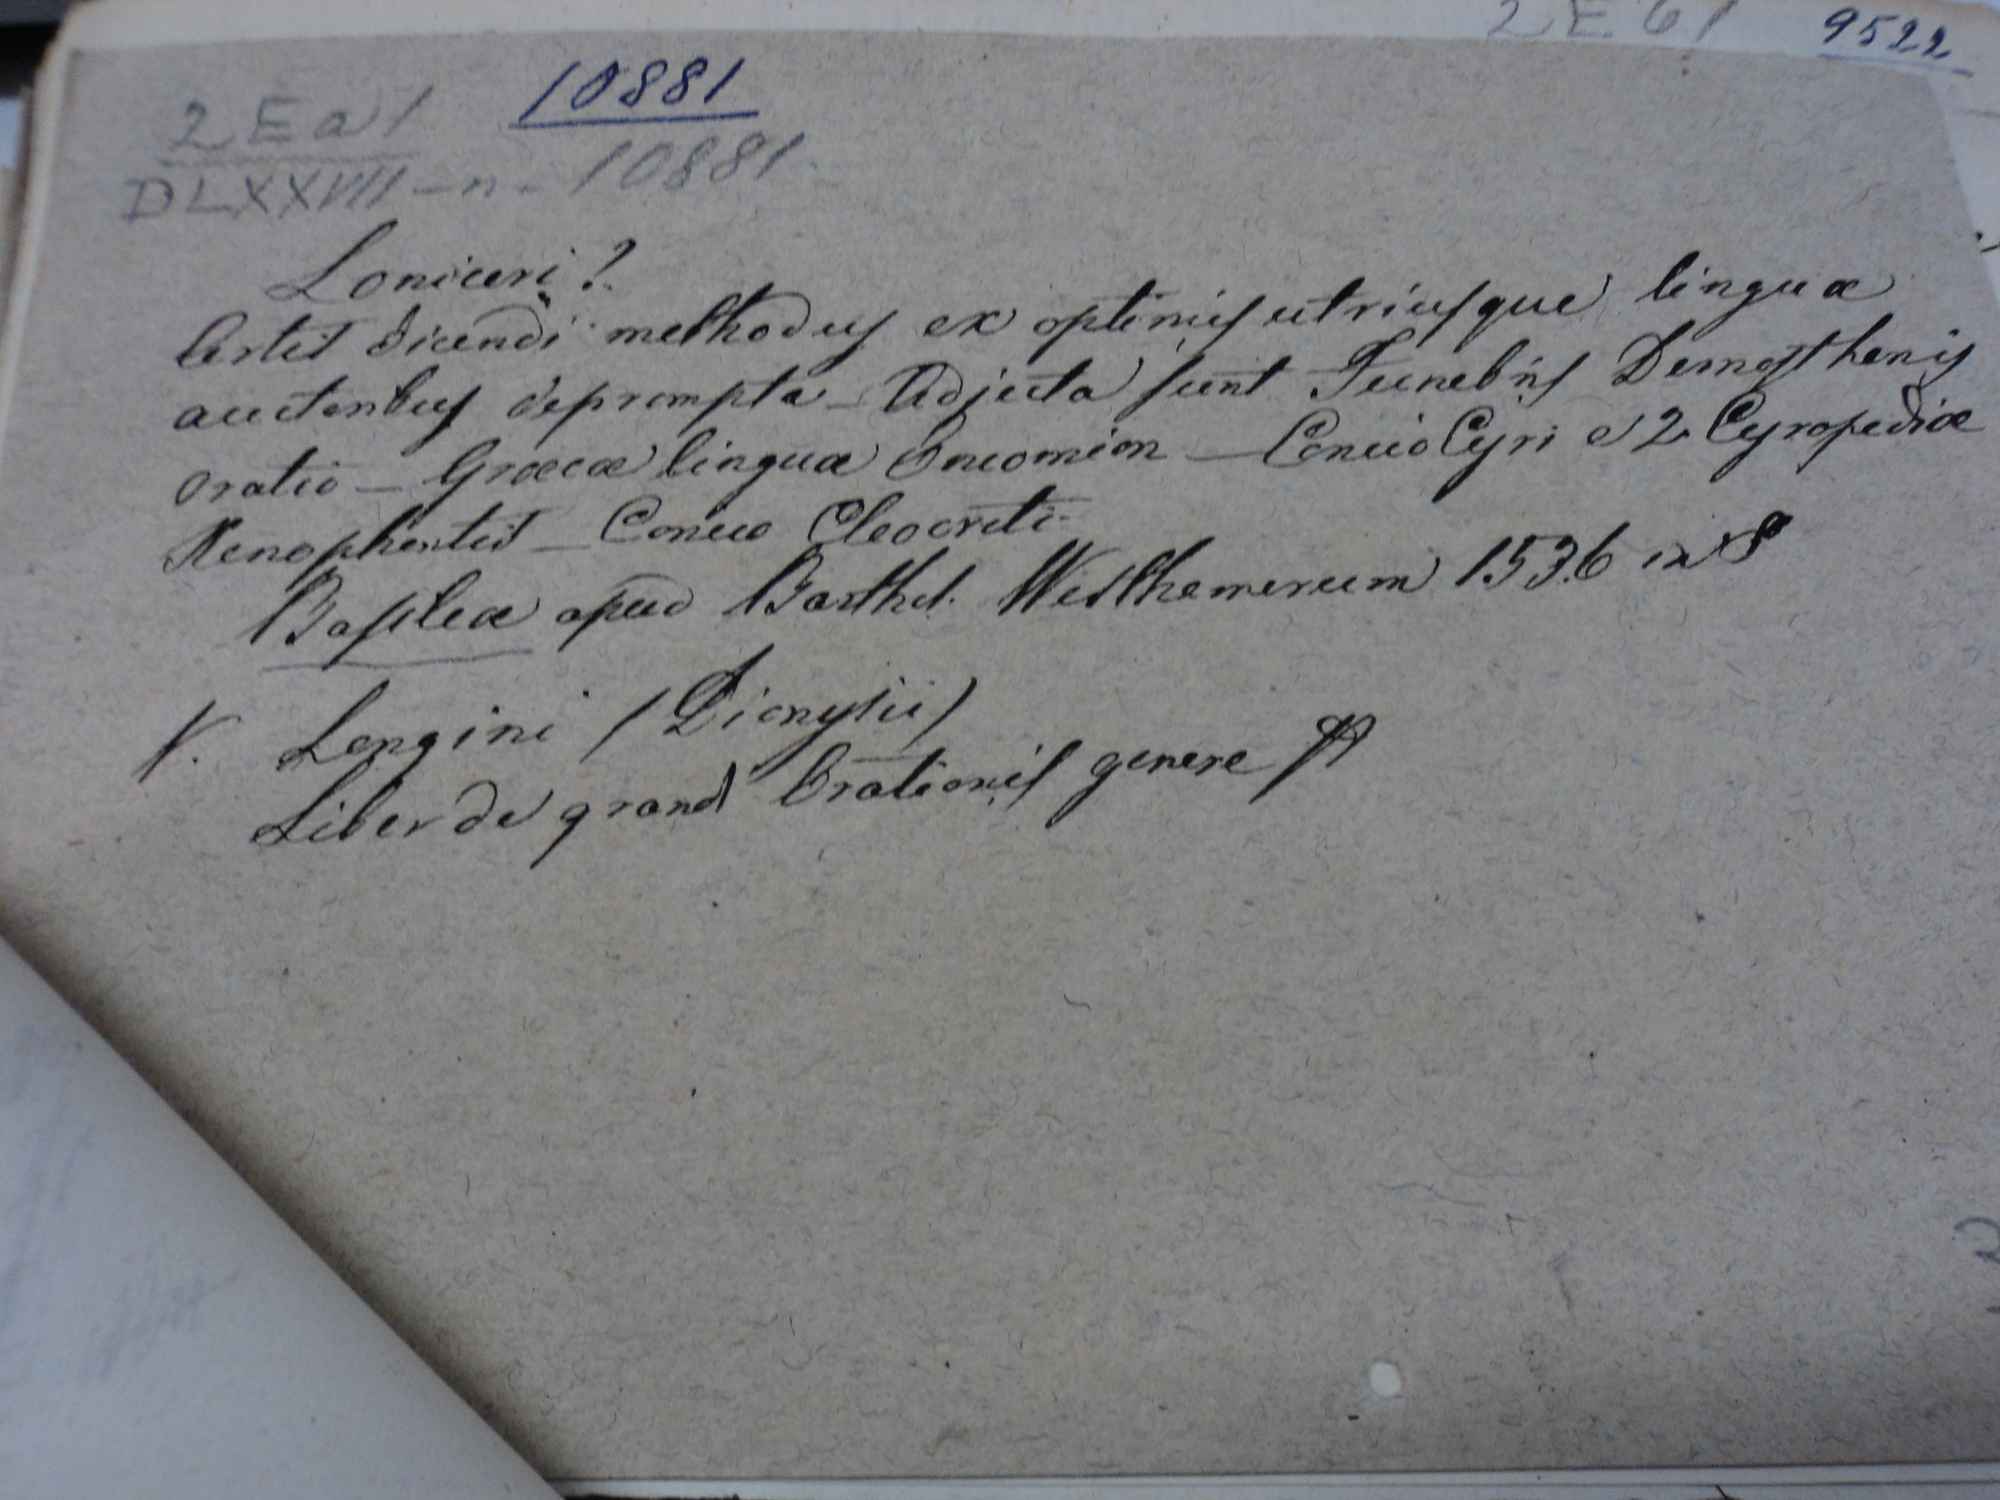 2 E 61 9522
2 E a 1 10881
DLXXVIII - n - 10881.
Loniceri?
Artis dicendi methodus ex optimis utriusque linguæ
auctoribus deprompta - Adjecta sunt Funebris Demosthenis
oratio - Græcæ linguæ Encomion - Concio Cyri e 2 Cyropediæ
Xenophontis - Concio Cleocriti.
Basileæ apud Barthol. Westhemerum 1536 in 8º
V. Longini (Dionysii)
Liber de grandi Orationis genere